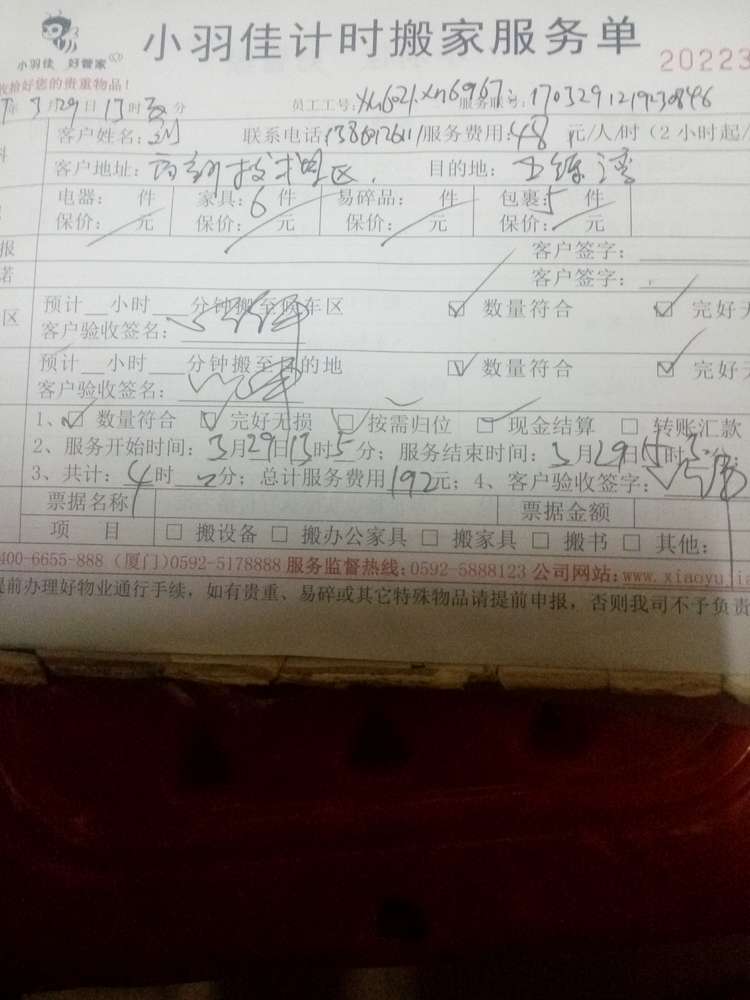 小羽佳计时搬家服务单
小羽佳 好管家
20223
收拾好您的贵重物品!
年3月29日13时 分 员工工号: 服务联号:
客户姓名: 联系电话: 服务费用:48 元/人/时(2小时起/
客户地址: 技术 区 目的地:
电器: 件 家具:6 件 易碎品: 件 包裹:5 件
保价: 元 保价: 元 保价: 元 保价: 元
报 客户签字:
诺 客户签字:
区 预计__小时___分钟搬至 车区 ☑ 数量符合 ☑ 完好无
客户验收签名:
预计__小时___分钟搬至目的地 ☑ 数量符合 ☑ 完好无
客户验收签名:
1、☑ 数量符合 ☑ 完好无损 ☑ 按需归位 ☑ 现金结算 □ 转账汇款
2、服务开始时间:3月29日13时5分; 服务结束时间:3月29日15时5分;
3、共计:4时 分; 总计服务费用192元; 4、客户验收签字:
票据名称 票据金额
项 目 □ 搬设备 □ 搬办公家具 □ 搬家具 □ 搬书 □ 其他:
400-6655-888 (厦门)0592-5178888 服务监督热线:0592-5888123 公司网站:www.xiaoyuji
提前办理好物业通行手续,如有贵重、易碎或其它特殊物品请提前申报,否则我司不予负责